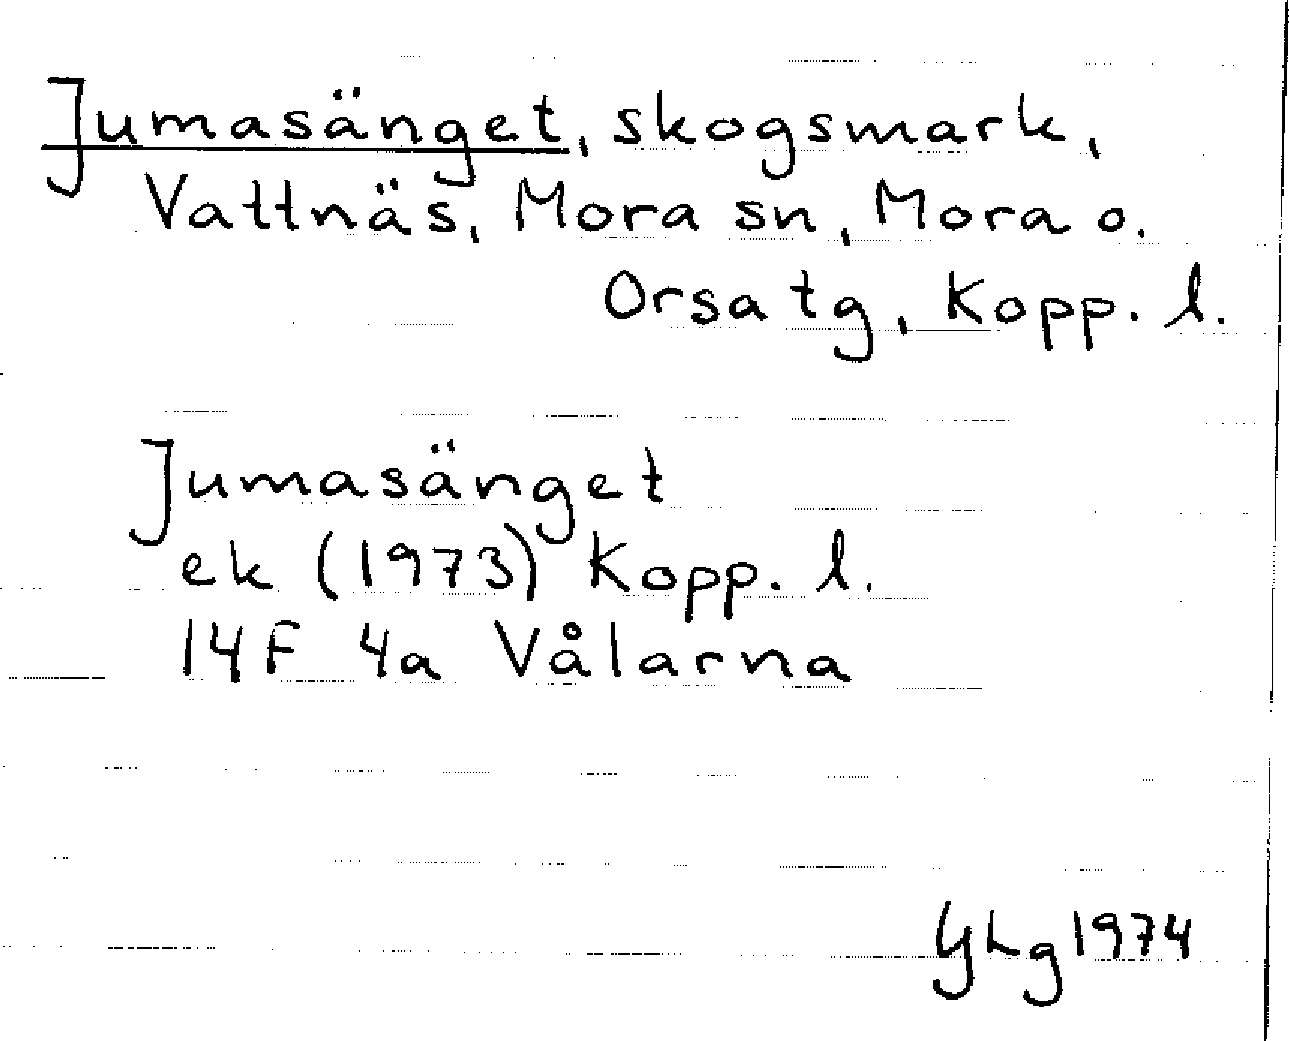 Jumasänget, skogsmark,
Vattnäs, Mora sn, Mora o.
Orsa tg, Kopp. l.
Jumasänget
ek (1973) Kopp. l.
14F 4a Vålarna
YLg 1974